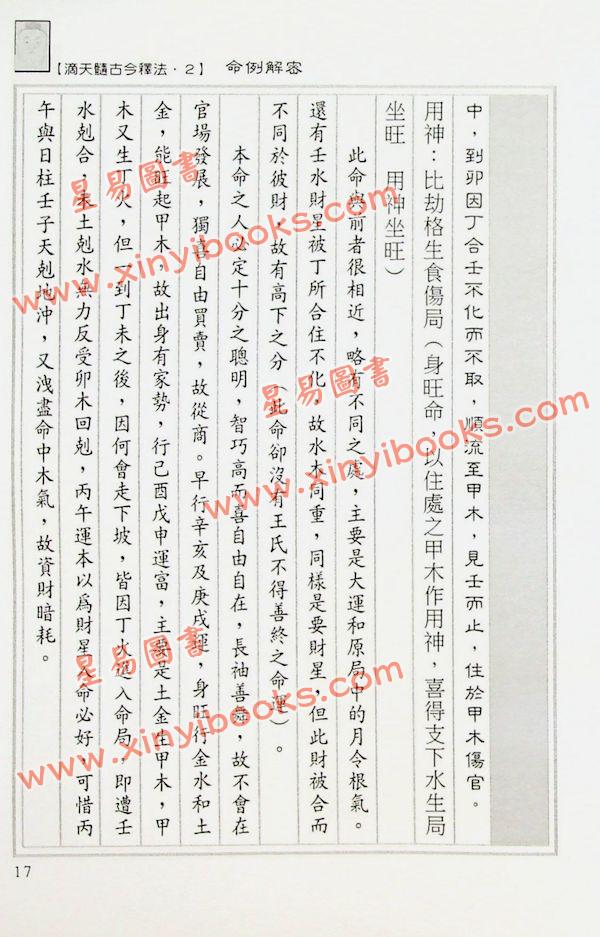 【滴天髓古今釋法·2】 命例解密
中，到卯因丁合壬不化而不取，順流至甲木，見壬而止，住於甲木傷官。
用神：比劫格生食傷局（身旺命，以住處之甲木作用神，喜得支下水生局
坐旺 用神坐旺）
此命與前者很相近，略有不同之處，主要是大運和原局中的月令根氣。
還有壬水財星被丁所合住不化，故水木同重，同樣是要財星，但此財被合而
不同於彼財，故有高下之分（此命卻沒有王氏不得善終之命運）。
本命之人必定十分之聰明，智巧高而喜自由自在，長袖善舞，故不會在
官場發展，獨喜自由買賣，故從商。早行辛亥及庚戌運，身旺行金水和土
金，能旺起甲木，故出身有家勢，行己酉戊申運富，主要是土金生甲木，甲
木又生丁火，但一到丁未之後，因何會走下坡，皆因丁火進入命局，即遭壬
水剋合，未土剋水無力反受卯木回剋，丙午運本以爲財星入命必好，可惜丙
午與日柱壬子天剋地沖，又洩盡命中木氣，故資財暗耗。
17
星易圖書
www.xinyibooks.com
星易圖書
www.xinyibooks.com
星易圖書
www.xinyibooks.com